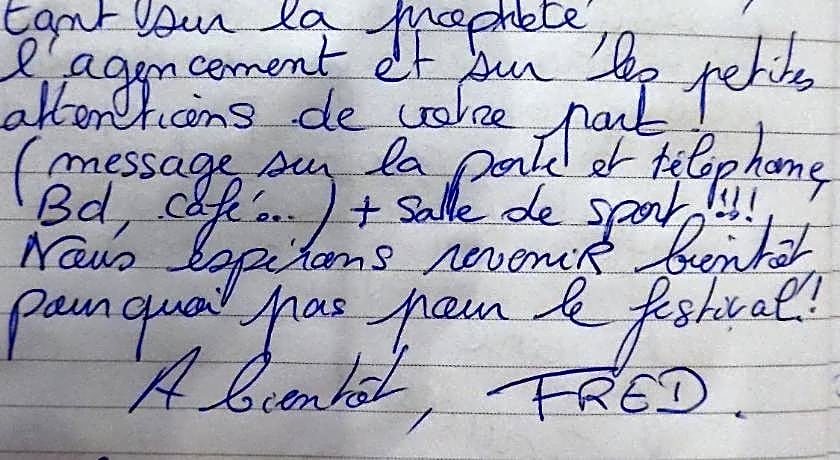 tant sur la propreté,
l'agencement et sur les petites
attentions de votre part !
(message sur la porte et téléphone,
Bd, café...) + salle de sport !!!!
Nous espérons revenir bientôt,
pourquoi pas pour le festival !
A bientôt, FRED.